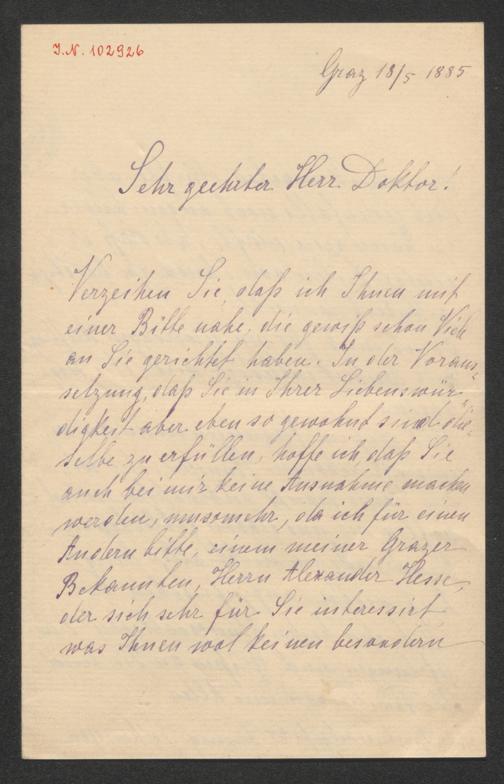 I.N. 102926
Graz 18/5 1885
Sehr geehrter Herr Doktor!
Verzeihen Sie, daß ich Ihnen mit
einer Bitte nahe, die gewiß schon Viele
an Sie gerichtet haben. In der Voraus-
setzung, daß Sie in Ihrer Liebenswür-
digkeit aber eben so gewohnt sind die-
selbe zu erfüllen, hoffe ich daß Sie
auch bei mir keine Ausnahme machen
werden, umsomehr, da ich für einen
Andern bitte, einem meiner Grazer
Bekannten, Herrn Alexander Hesse,
der sich sehr für Sie interessirt
was Ihnen wol keinen besondern